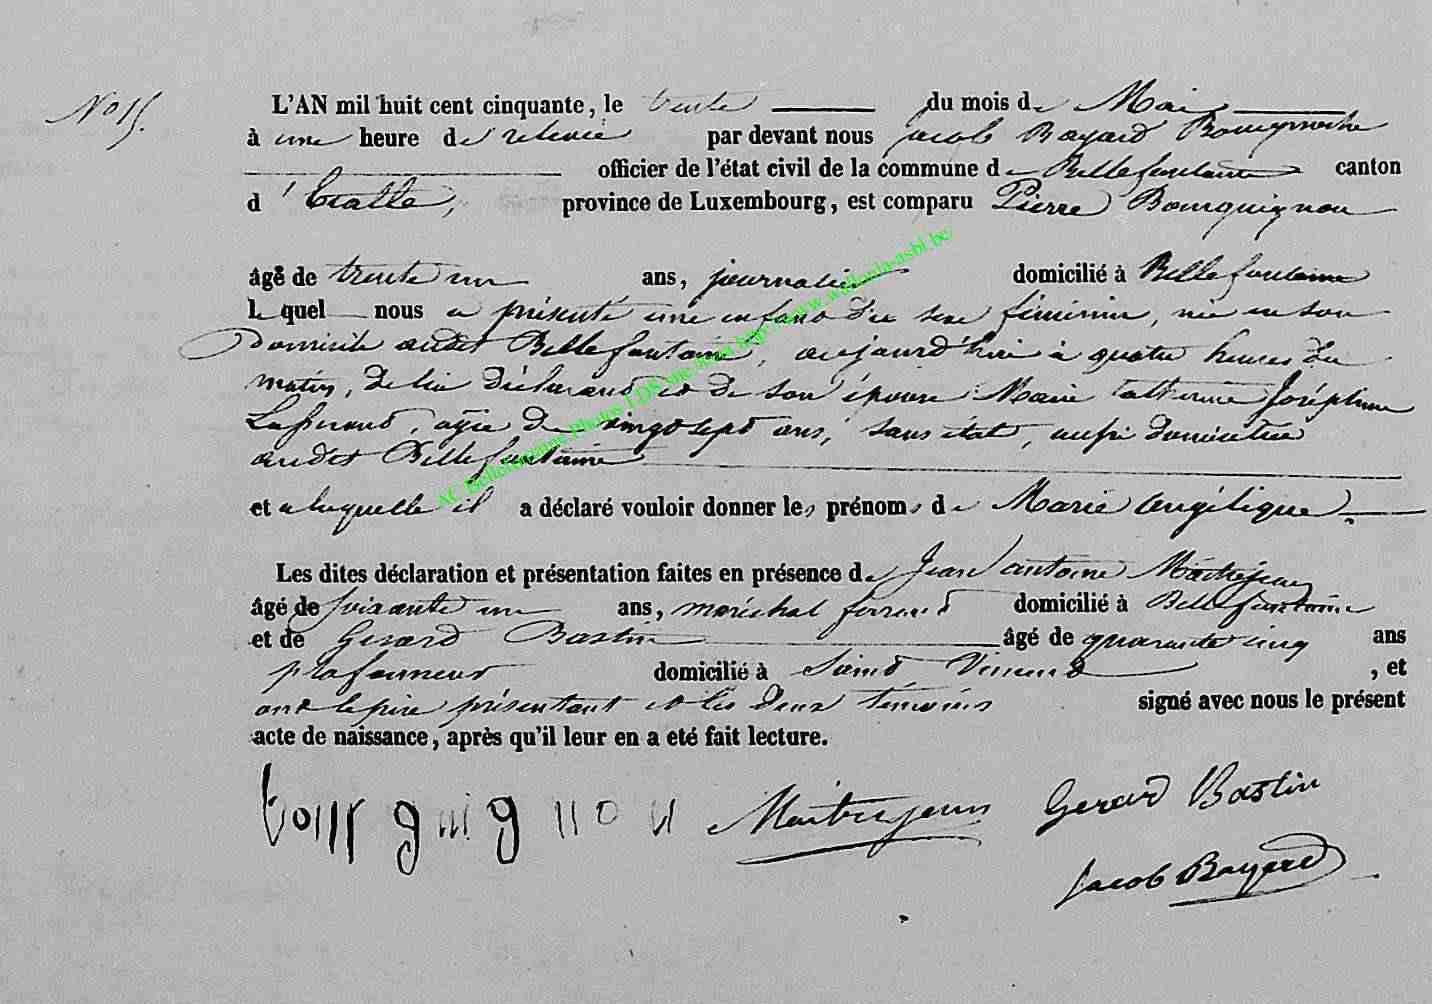 No 15.
L'AN mil huit cent cinquante, le trente du mois de Mai
à une heure de relevée par devant nous Jacob Bayard Bourgmestre
officier de l'état civil de la commune de Bellefontaine canton
d'Etalle, province de Luxembourg, est comparu Pierre Bourguignon
âgé de trente un ans, journalier domicilié à Bellefontaine
lequel nous a présenté une enfant du sexe féminin, née en son
domicile audit Bellefontaine, aujourd'hui à quatre heures du
matin, de lui déclarant et de son épouse Marie Catherine Joséphine
agée de vingt sept ans, sans état, aussi domiciliée
audit Bellefontaine
et a laquelle il a déclaré vouloir donner les prénoms de Marie Angélique.
Les dites déclaration et présentation faites en présence de Jean Antoine Maitrejean
âgé de soixante un ans, maréchal ferrant domicilié à Bellefontaine
et de Gerard Bastin âgé de quarante cinq ans
plafonneur domicilié à Saint Vincent, et
ont le père présentant et les deux témoins signé avec nous le présent
acte de naissance, après qu'il leur en a eté fait lecture.
bourguignon Maitrejean Gerard Bastin
Jacob Bayard
AC Bellefontaine Photos LDS via le site http://www.wallonia-asbl.be/